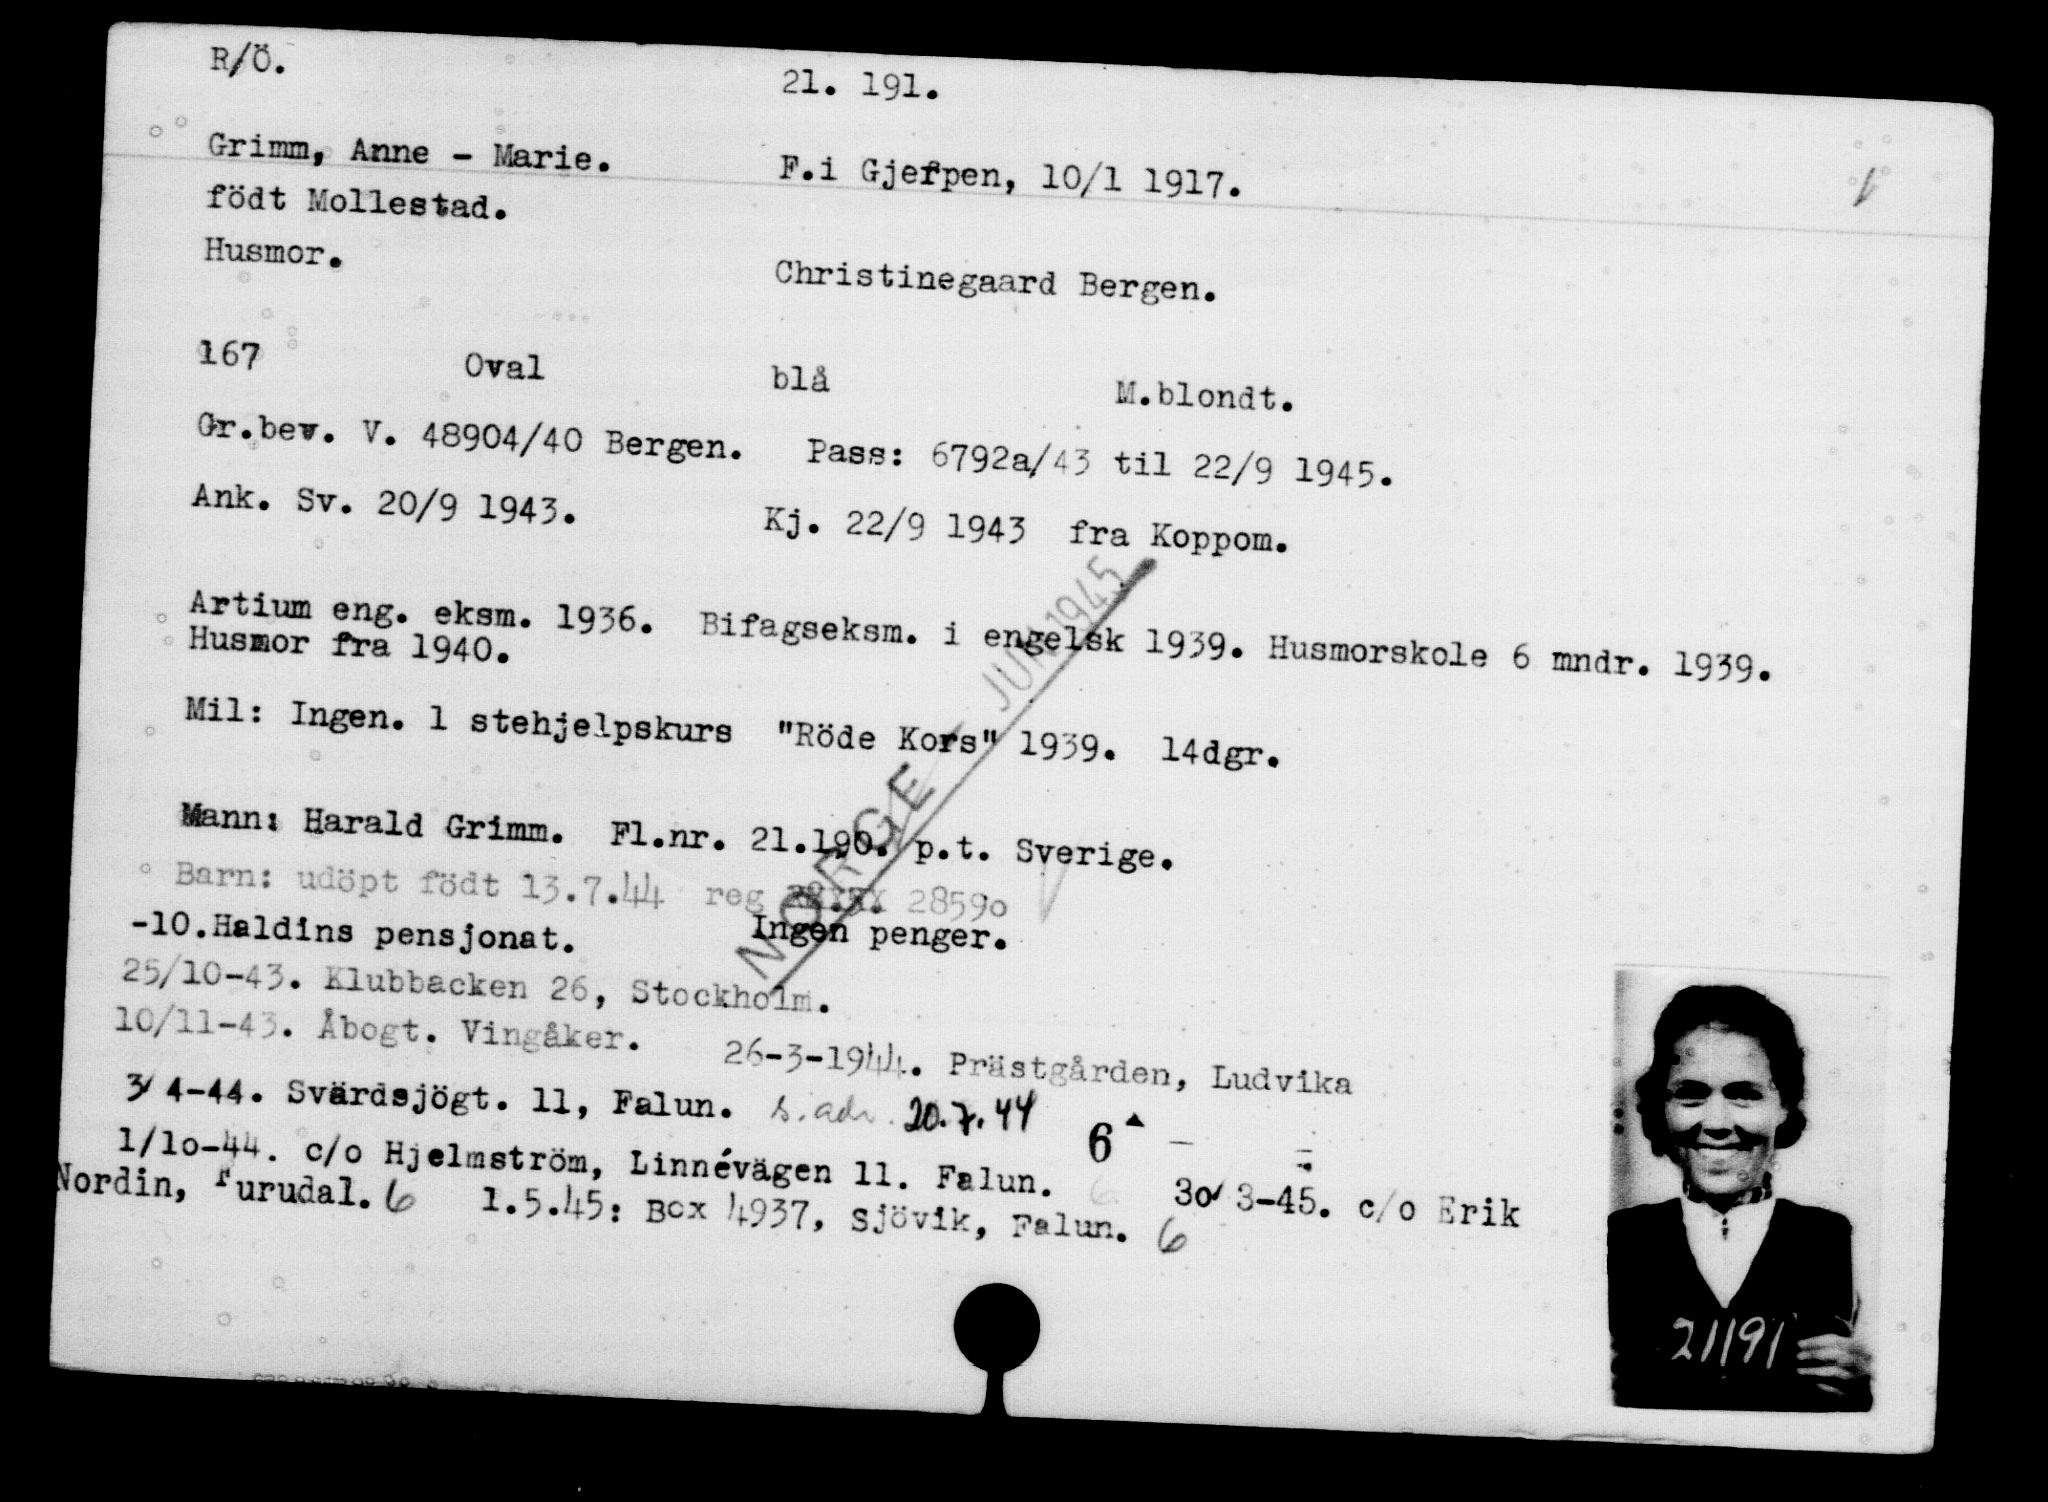 R/Ö.
21. 191.
Grimm, Anne - Marie.
F.i Gjerpen, 10/1 1917.
födt Mollestad.
Husmor.
Christinegaard Bergen.
167 Oval blå M.blondt.
Gr.bev. V. 48904/40 Bergen. Pass: 6792a/43 til 22/9 1945.
Ank. Sv. 20/9 1943. Kj. 22/9 1943 fra Koppom.
Artium eng. eksm. 1936. Bifagseksm. i engelsk 1939. Husmorskole 6 mndr. 1939.
Husmor fra 1940.
Mil: Ingen. 1 stehjelpskurs "Röde Kors" 1939. 14dgr.
Mann: Harald Grimm. Fl.nr. 21.190. p.t. Sverige.
Barn: udöpt födt 13.7.44 reg 2859o
-10.Haldins pensjonat. Ingen penger.
25/10-43. Klubbacken 26, Stockholm.
10/11-43. Åbogt. Vingåker. 26-3-1944. Prästgården, Ludvika
3/4-44. Svärdsjögt. 11, Falun. s. adr. 20.7.44 6
1/1o-44. c/o Hjelmström, Linnévägen 11. Falun. 6 3o/3-45. c/o Erik
Nordin, Furudal. 6 1.5.45: Box 4937, Sjövik, Falun. 6
NORGE JUNI 1945
21191